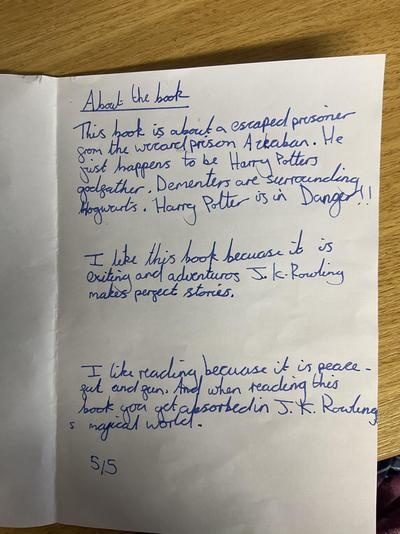 About the book
This book is about a escaped prisoner
from the wizard prison Azkaban. He
just happens to be Harry Potters
godfather. Dementers are surrounding
Hogwarts. Harry Potter is in Danger!!
I like this book becuase it is
exiting and adventuros J.K.Rowling
makes perfect stories.
I like reading becuase it is peace-
ful and fun. And when reading this
book you get absorbed in J. K. Rowling
s magical world.
5/5